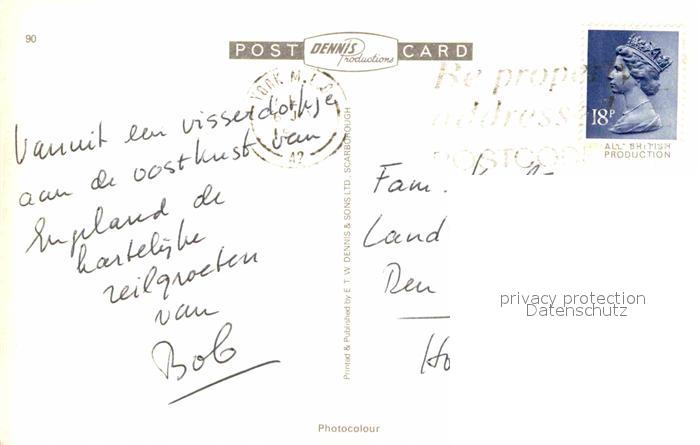 90
POST DENNIS Productions CARD
YORK M.L.O.
42
Be properly
addressed
POSTCODE
18P
ALL BRITISH
PRODUCTION
Vanuit een visserdorpje
aan de oostkust van
Engeland de
hartelijke
zeilgroeten
van
Bob
Printed & Published by E.T.W. DENNIS & SONS LTD., SCARBOROUGH
Fam.
Land
Den
Ho
privacy protection
Datenschutz
Photocolour